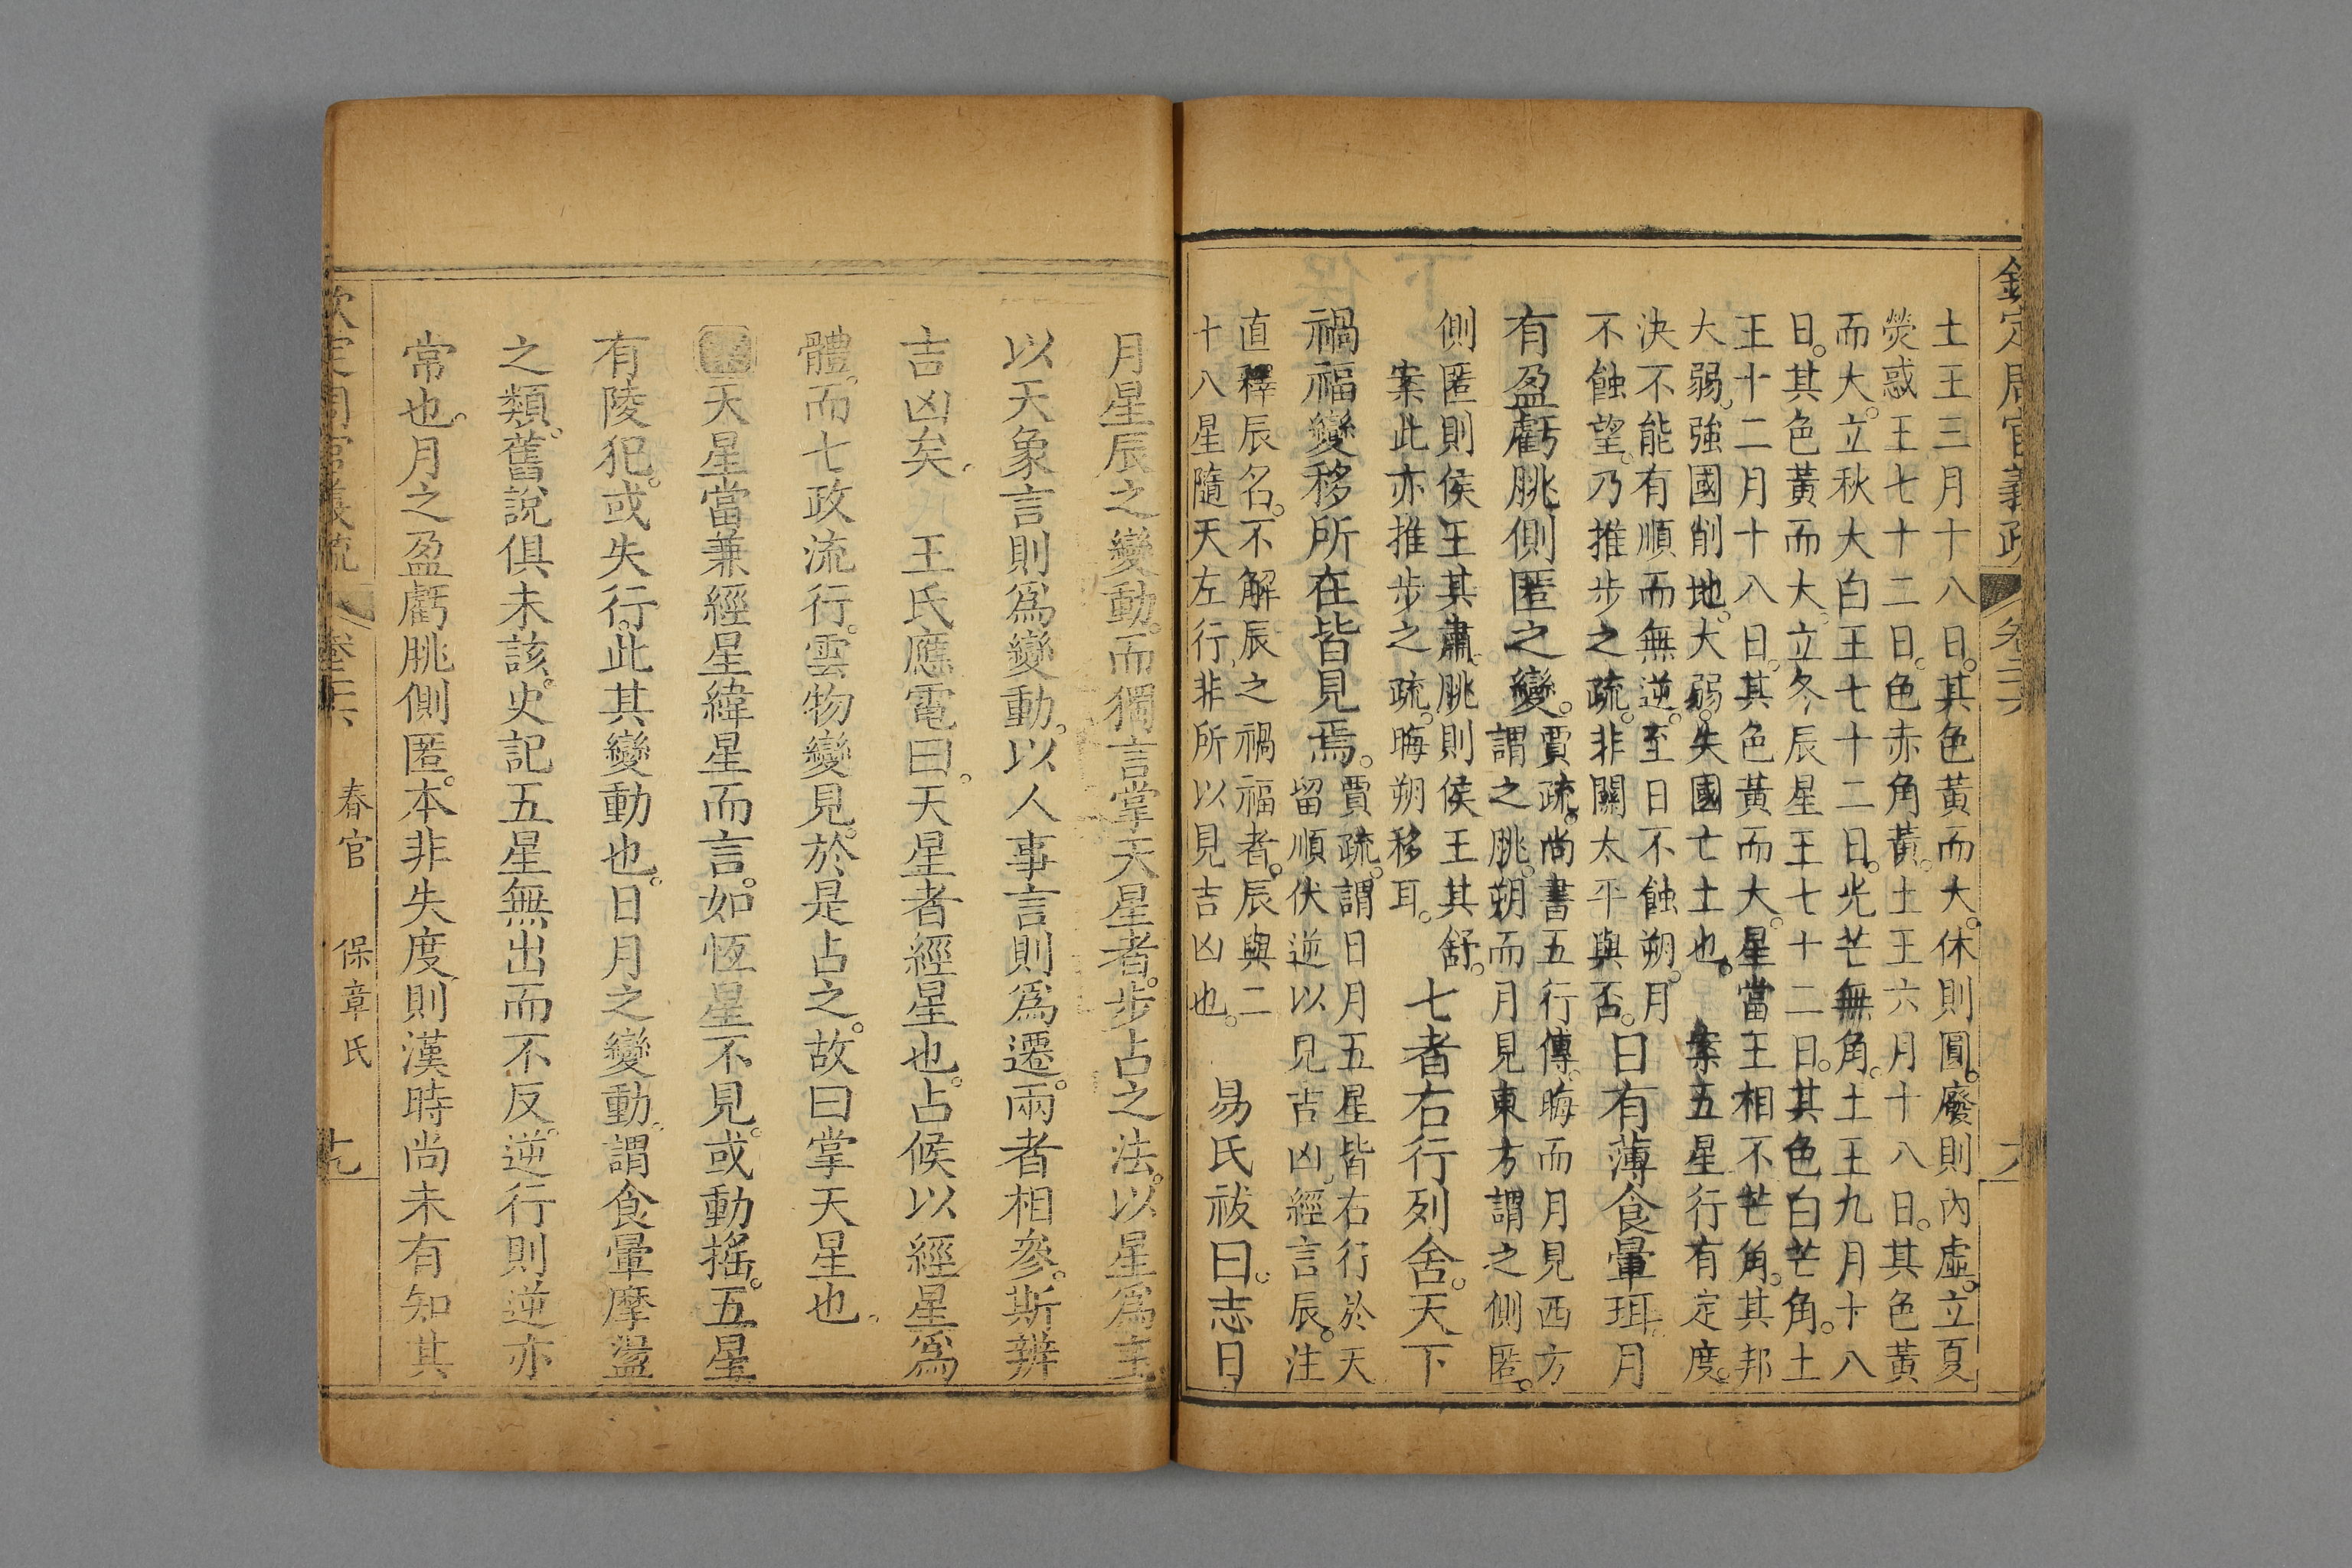 欽定周官義疏 卷二六
土王三月十八日。其色黃而大。休則圓。廢則內虛。立夏
熒惑王七十二日。色赤角黃。土王六月十八日。其色黃
而大。立秋大白王七十二日。光芒無角。土王九月十八
日。其色黃而大。立冬辰星王七十二日。其色白芒角。土
王十二月十八日。其色黃而大。星當王相不芒角。其邦
大弱。強國削地。大弱。失國亡土也。 案五星行有定度。
決不能有順而無逆。至日不蝕朔。月
不蝕望。乃推步之疏。非關太平與否。
日有薄食暈珥。月
有盈虧朓側匿之變。
賈疏。尚書五行傳。晦而月見西方
謂之朓。朔而月見東方謂之側匿。
側匿則侯王其肅。朓則侯王其舒。
案此亦推步之疏。晦朔移耳。
七者右行列舍。天下
禍福變移所在皆見焉。
賈疏。謂日月五星皆右行於天
留順伏逆以見吉凶。經言辰。注
直釋辰名。不解辰之禍福者。辰與二
十八星隨天左行。非所以見吉凶也。
易氏祓曰。志日
月星辰之變動。而獨言掌天星者。步占之法。以星為主
以天象言則為變動。以人事言則為遷。兩者相參。斯辨
吉凶矣。 王氏應電曰。天星者經星也。占候以經星為
體。而七政流行。雲物變見。於是占之。故曰掌天星也。
天星當兼經星緯星而言。如恆星不見。或動搖。五星
有陵犯。或失行。此其變動也。日月之變動。謂食暈摩盪
之類。舊說俱未該。史記五星無出而不反逆行則逆亦
常也。月之盈虧朓側匿。本非失度。則漢時尚未有知其
欽定周官義疏 卷二六 春官 保章氏